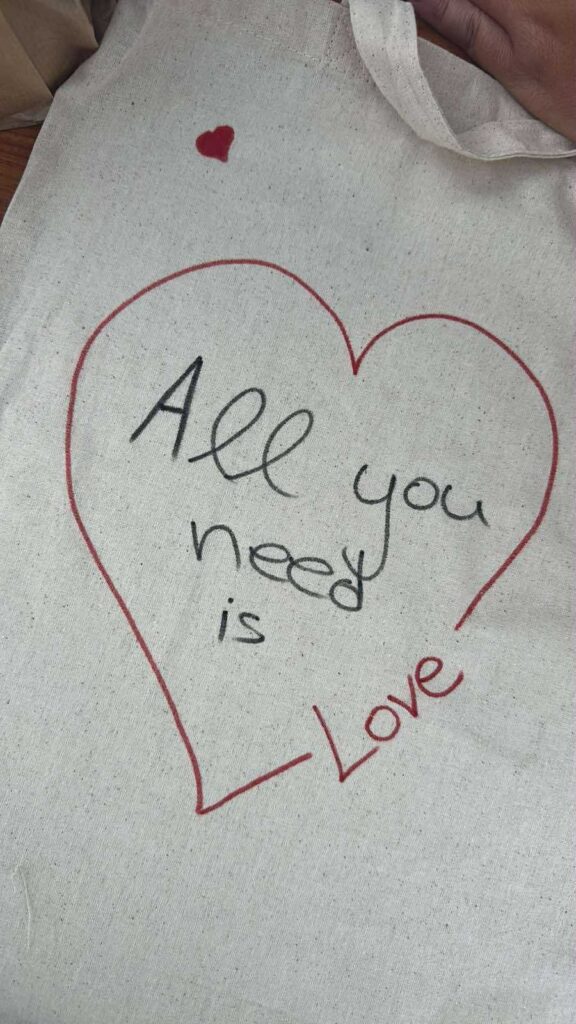 All you
need
is
Love